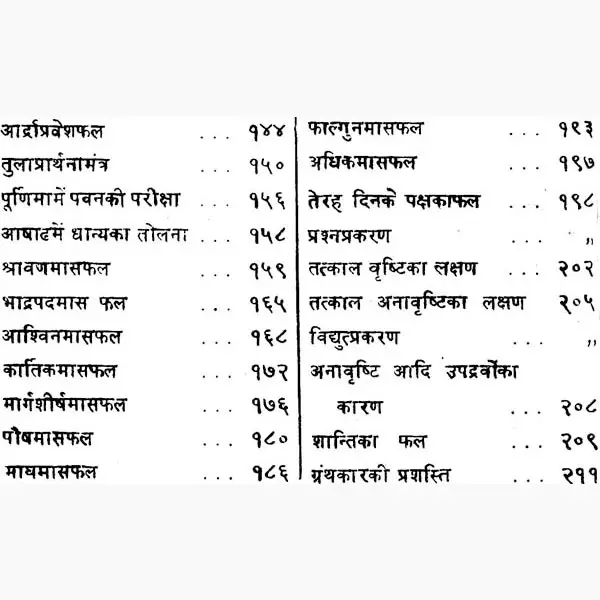 आर्द्राप्रवेशफल ... १४४
तुलाप्रार्थनामंत्र ... १५०
पूर्णिमामें पवनकी परीक्षा ... १५६
आषाढमें धान्यका तोलना ... १५८
श्रावणमासफल ... १५९
भाद्रपदमास फल ... १६५
आश्विनमासफल ... १६८
कार्तिकमासफल ... १७२
मार्गशीर्षमासफल ... १७६
पौषमासफल ... १८०
माघमासफल ... १८६
फाल्गुनमासफल ... १९३
अधिकमासफल ... १९७
तेरह दिनके पक्षकाफल ... १९८
प्रश्नप्रकरण ... ,,
तत्काल वृष्टिका लक्षण ... २०२
तत्काल अनावृष्टिका लक्षण २०५
विद्युत्प्रकरण ... ,,
अनावृष्टि आदि उपद्रवोंका
कारण ... २०८
शान्तिका फल ... २०९
ग्रंथकारकी प्रशस्ति ... २११